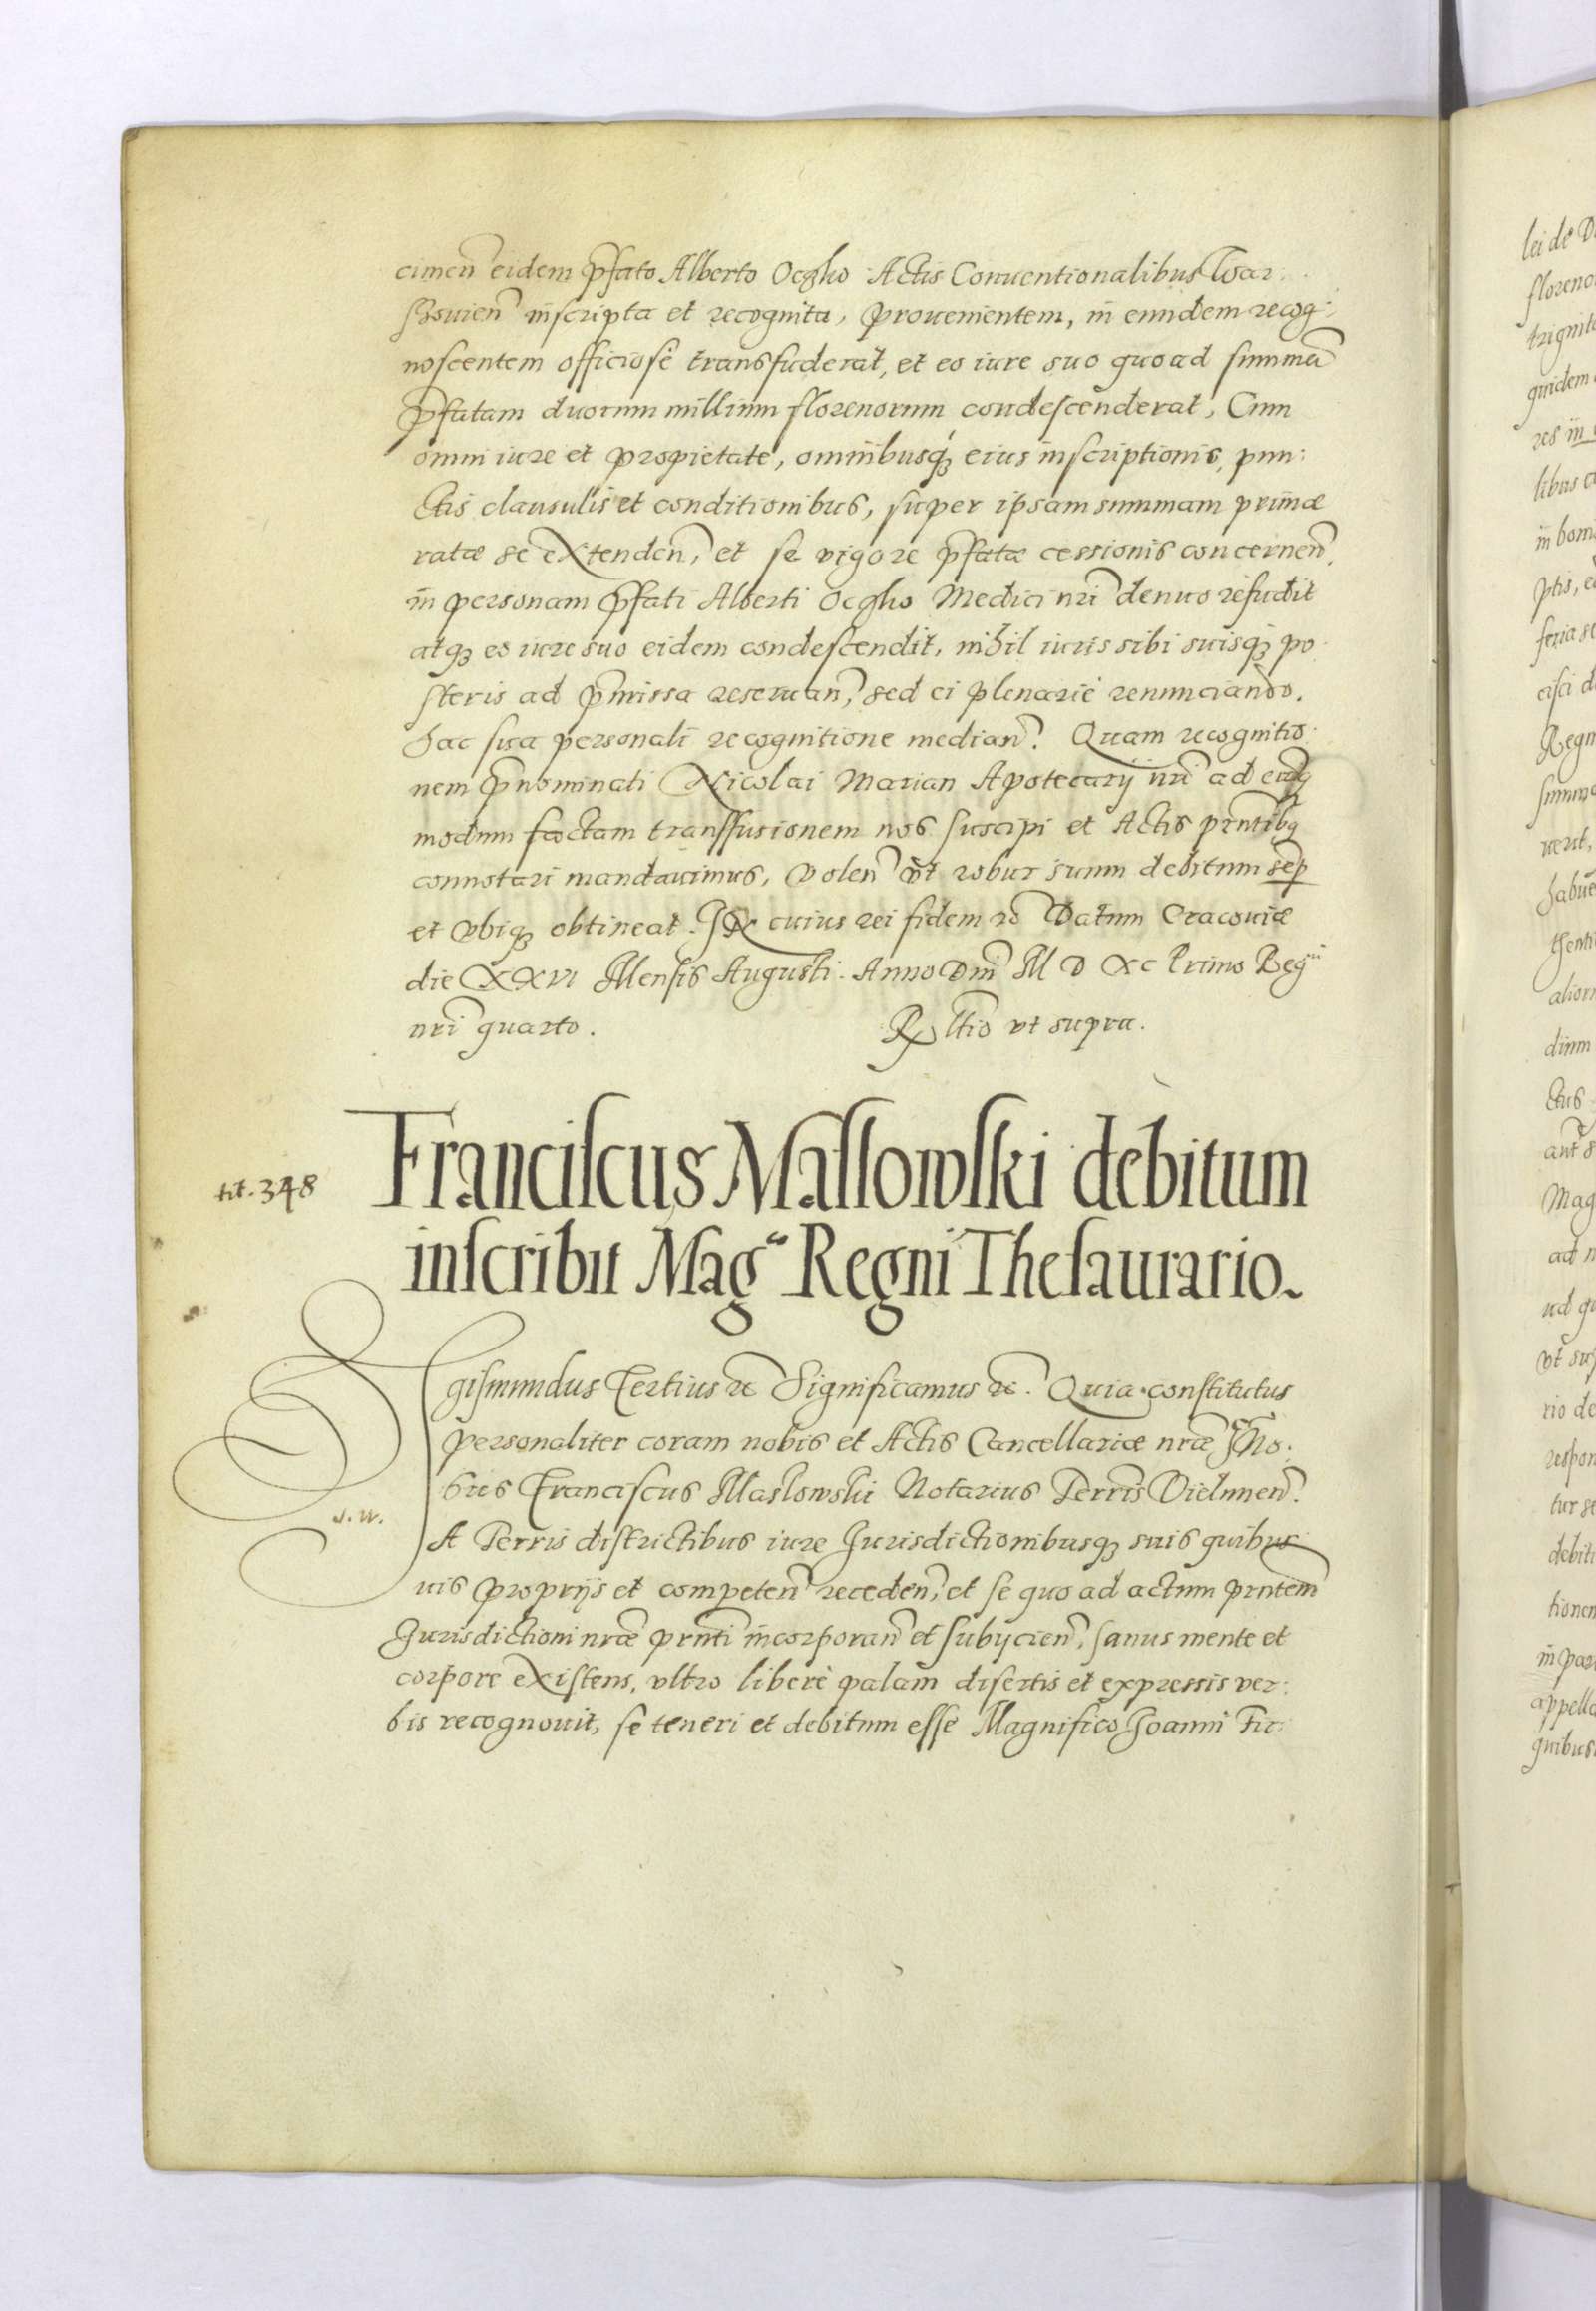 cimen̄ eidem p̄fato Alberto Ocgho Actis Conuentionalibus War
schouien̄ inscripta et recognita, prouenientem, in eundem recog:
noscentem officiosè transfuderat, et eo iure suo quoad summā
p̄fatam duorum millium florenorum condescenderat, Cum
omni iure et propietate, omnibusq́ꝫ eius inscriptionis, pun:
ctis clausulis et conditionibus, super ipsam summam primæ
ratæ se extenden̄, et se vigore p̄fatæ cessionis concernen̄.
in personam p̄fati Alberti Ocgho Medici nr̄i denuo refudit
atqꝫ eo iure suo eidem condescendit, nihil iuris sibi suisqꝫ po
steris ad p̄missa reseruan̄, sed ei plenariè renunciando.
hac sua personali recognitione median̄. Quam recognitio
nem p̄nominati Nicolai Marian Apotecarij nr̄i ad eum
modum factam transfusionem nos suscipi et Actis prn̄tibꝫ
connotari mandauimus, volen̄ vt robur suum debitum semp̄
et vbiqꝫ obtineat. In cuius rei fidem ꝛc Datum Cracouiæ
die XXVI Mensis Augusti. Anno Dn̄i M D XC Primo Regni
nr̄i quarto.
Rltio vt supra.
tit. 348
Franciscus Masłowski debitum
inscribit Mag.co Regni Thesaurario.
Sigismundus Tertius ꝛc Significamus ꝛc. Quia constitutus
personaliter coram nobis et Actis Cancellariæ nr̄æ Gn̄o.
sus Franciscus Masłowski Notarius Terrīs Vielunen̄.
J. W.
A Terris districtibus iure Jurisdictionibusqꝫ suis quibus
uis proprijs et competen̄ receden̄, et se quo ad actum prn̄tem
Jurisdictioni nr̄æ prn̄ti incorporan̄ et subijcien̄, sanus mente et
corpore existens, vltro liberè palam disertis et expressis ver:
bis recognouit, se teneri et debitum esse Magnifico Joanni Fir: